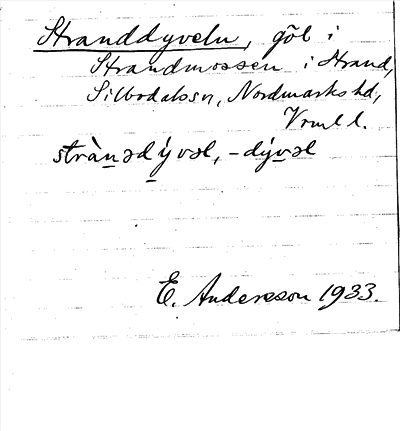 Stranddyveln, göl i
Strandmossen i Strand,
Silbodalssn, Nordmarks hd,
Vrml l.
strànədývəl, -dývəl
E. Andersson 1933.